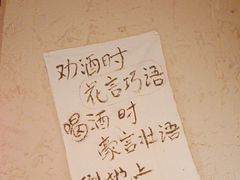 劝酒时
花言巧语
喝酒时
豪言壮语